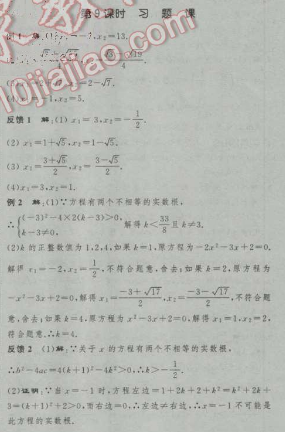 第9课时 习题课
x₂=13.
x₂=5.
反馈1 解:(1) x₁=3, x₂=-1/2.
(2) x₁=1+√5, x₂=1-√5.
(3) x₁=(3+√5)/2, x₂=(3-√5)/2.
(4) x₁=3, x₂=1.
例2 解:(1)∵方程有两个不相等的实数根,
∴{(-3)²-4×2(k-3)>0, k-3≠0, 解得k<33/8且k≠3.
(2)k的正整数值为1,2,4,如果k=1,原方程为-2x²-3x+2=0.
解得x₁=-2,x₂=1/2,不符合题意,舍去;如果k=2,原方程为
-x²-3x+2=0,解得x₁=(-3+√17)/2,x₂=(-3-√17)/2,不符合题
意,舍去;如果k=4,原方程为x²-3x+2=0,解得x₁=1,x₂=2,
符合题意.∴k=4.
反馈2 (1)解:∵关于x的方程有两个不相等的实数根,
∴b²-4ac=4(k+1)²-4k²>0,∴k>-1/2.
(2)证明:∵当x=-1时,方程左边=1+2k+2+k²=k²+2k+
3=(k+1)²+2>0,而右边=0,∴左边≠右边,∴x=-1不可能是
此方程的实数根.